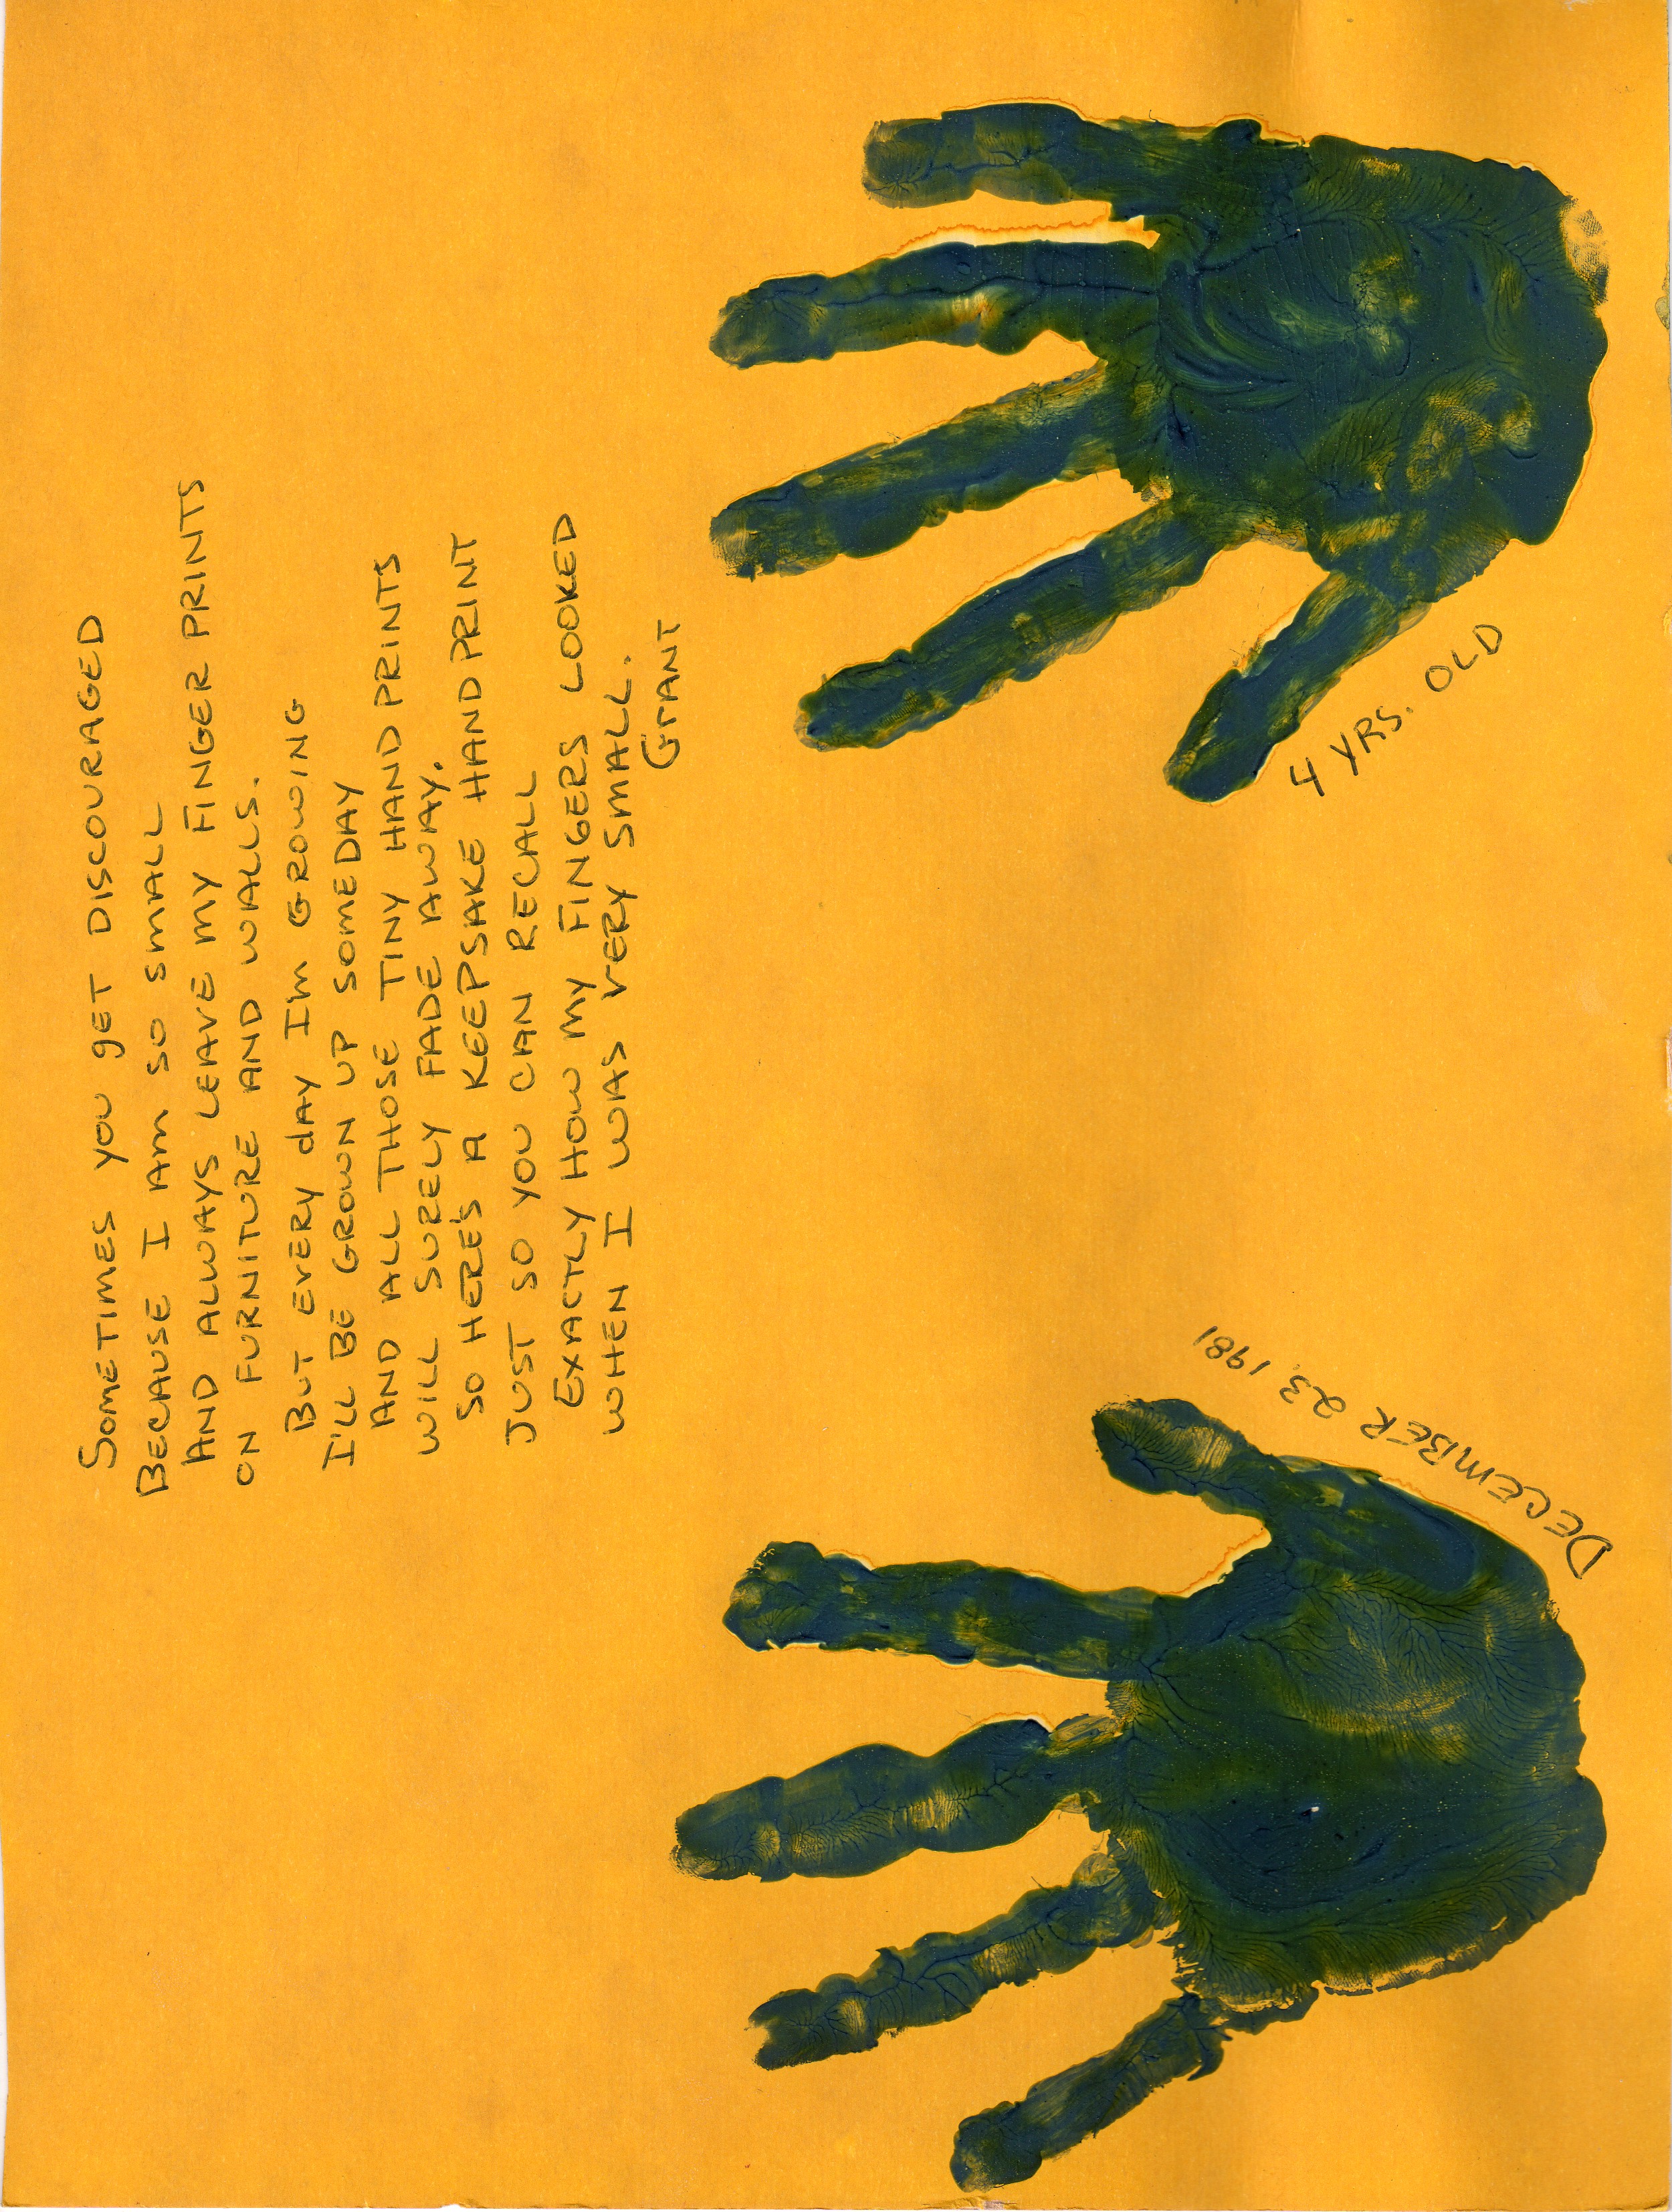 SOMETIMES YOU gET DISCOURAGED
BECAUSE I AM SO SMALL
AND ALWAYS LEAVE MY FINGER PRINTS
ON FURNITURE AND WALLS.
BUT EVERY dAY I'M GROWING
I'LL BE GROWN UP SOMEDAY
AND ALL THOSE TINY HAND PRINTS
WILL SURELY FADE AWAY.
SO HERE'S A KEEPSAKE HAND PRINT
JUST SO YOU CAN RECALL
EXACTLY HOW MY FINGERS LOOKED
WHEN I WAS VERY SMALL.
GRANT
DECEMBER 23, 1981
4 YRS. OLD